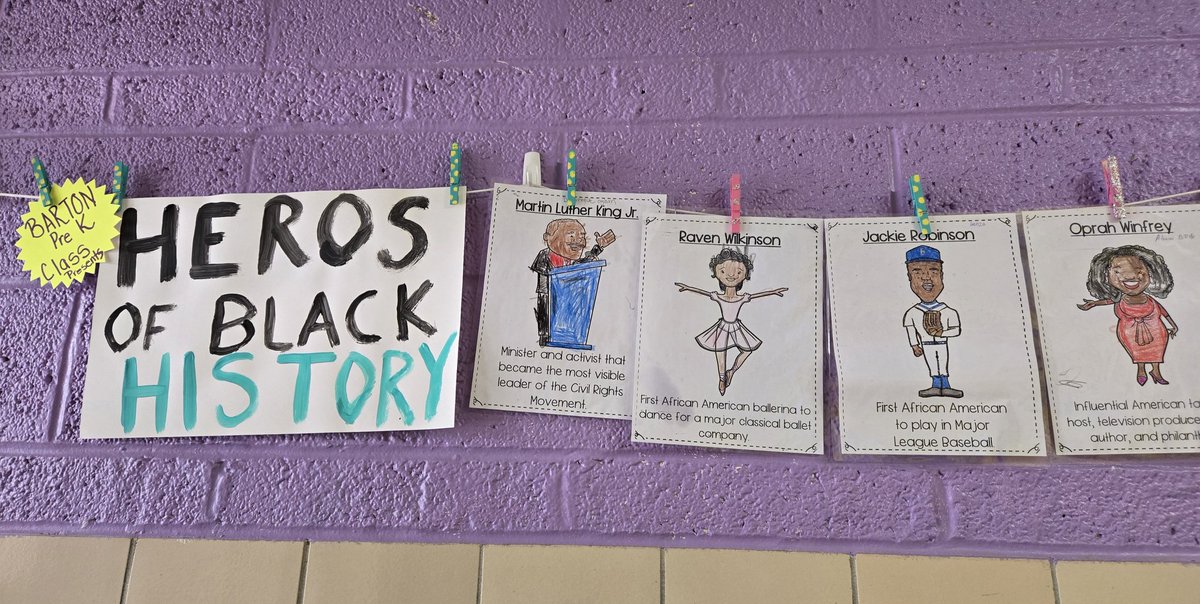 BARTON
Pre K
Class
Presents
HEROS
OF BLACK
HISTORY
Martin Luther King Jr.
Minister and activist that
became the most visible
leader of the Civil Rights
Movement.
Raven Wilkinson
First African American ballerina to
dance for a major classical ballet
company.
Jackie Robinson
First African American
to play in Major
League Baseball.
Oprah Winfrey
Influential American ta
host, television produce
author, and philant